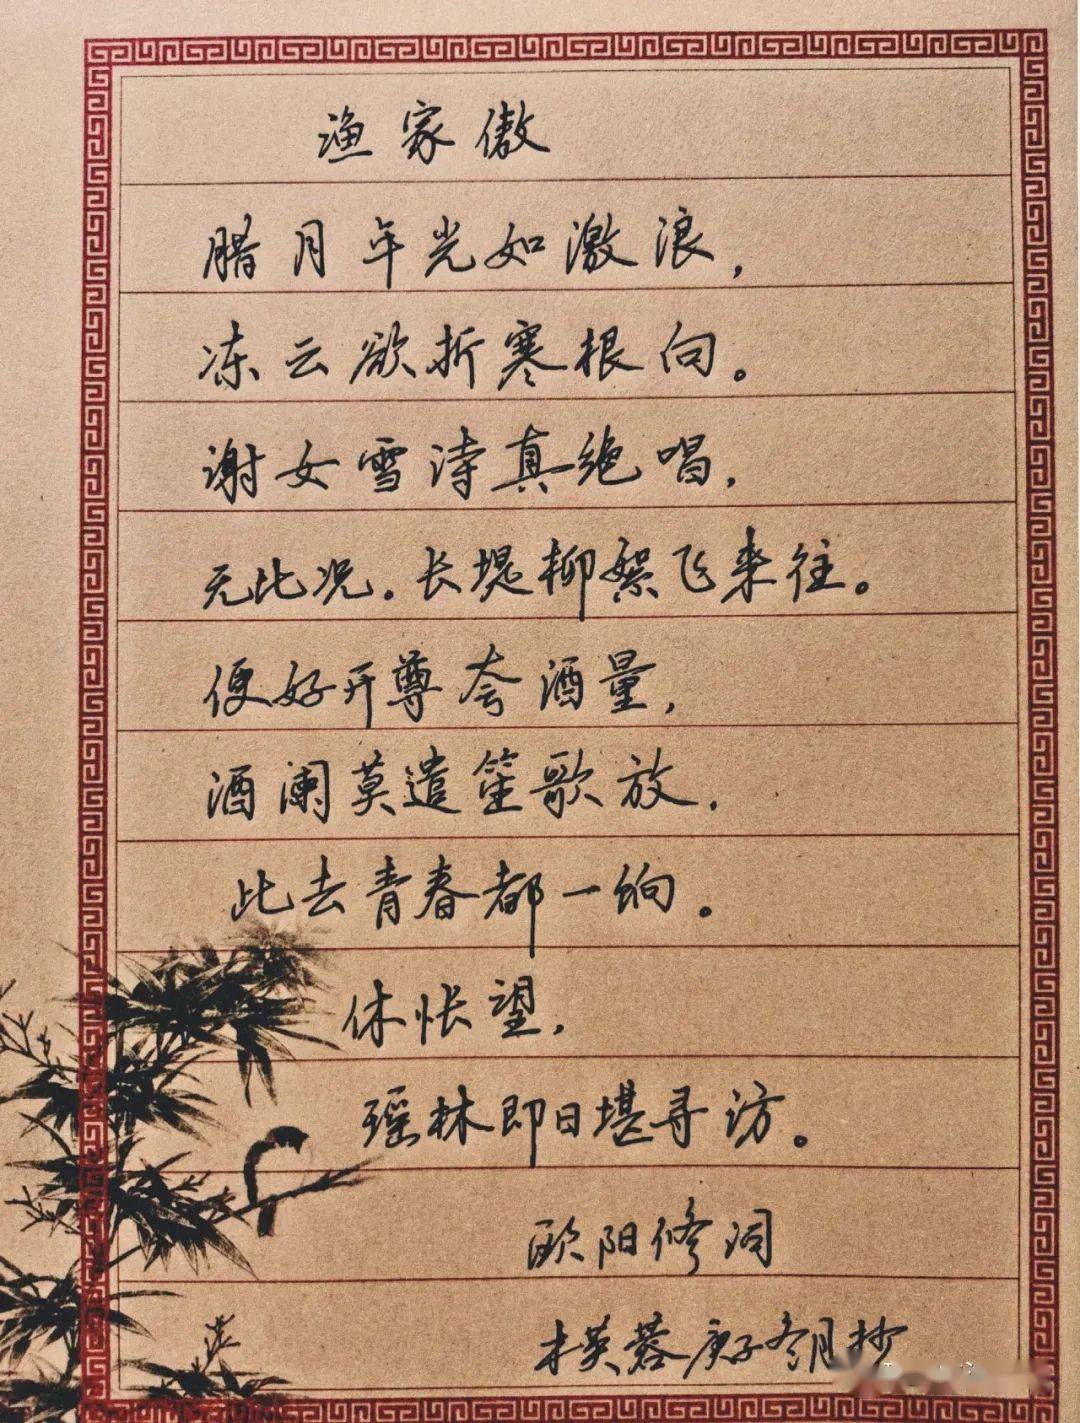 渔家傲
腊月年光如激浪，
冻云欲折寒根向。
谢女雪诗真绝唱，
无比况。长堤柳絮飞来往。
便好开尊夸酒量，
酒阑莫遣笙歌放，
此去青春都一饷。
休怅望，
瑶林即日堪寻访。
欧阳修词
木芙蓉庚子冬月抄